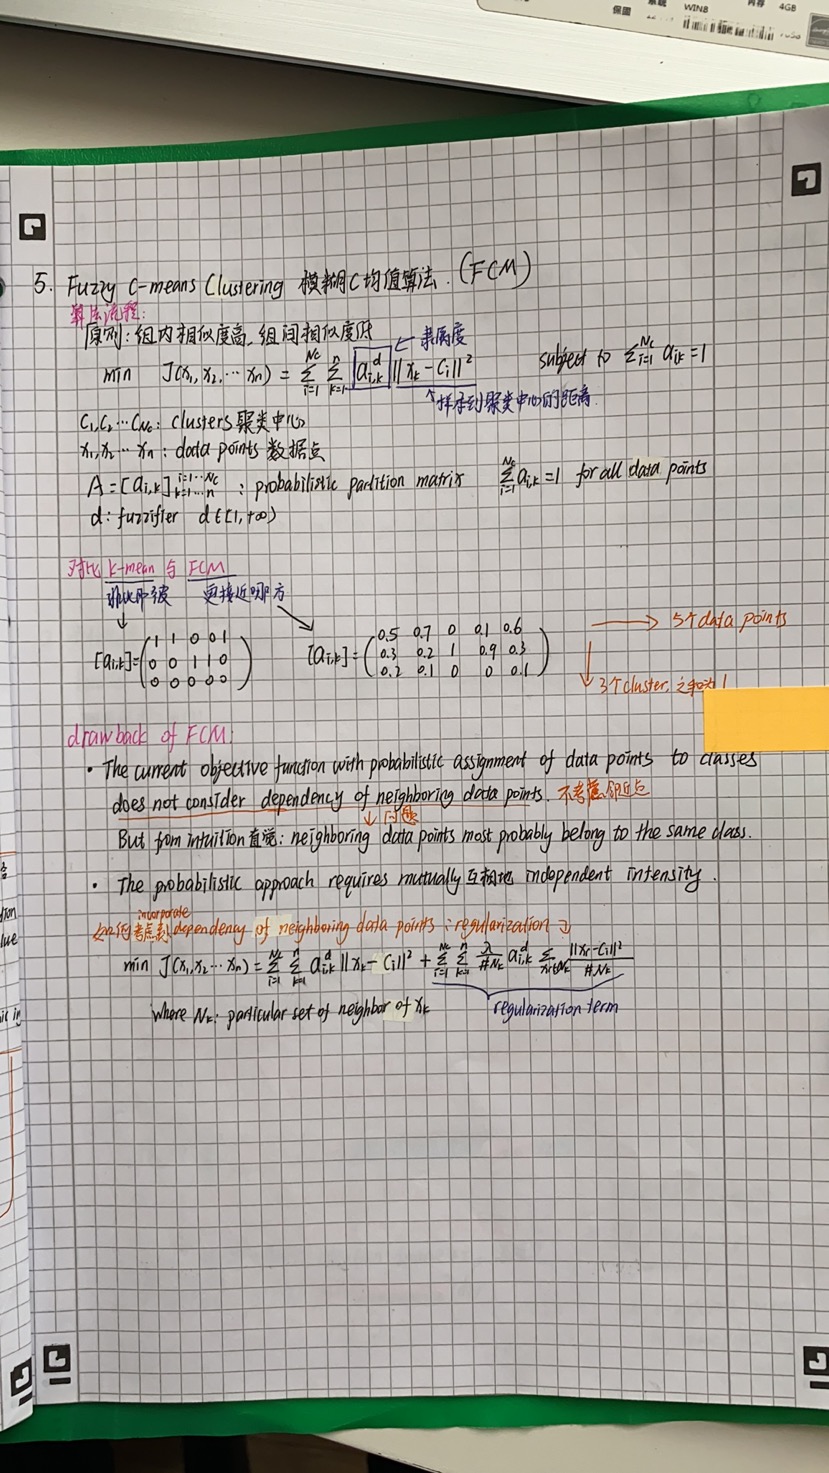 保固
系統
WIN8
內存
4GB
5. Fuzzy C-means Clustering 模糊C均值算法. (FCM)
算法流程:
原则: 组内相似度高, 组间相似度低
隶属度
min J(x₁, x₂, ⋯ xₙ) = Σ_{i=1}^{Nc} Σ_{k=1}^{n} a_{i,k}^d ||x_k - C_i||² subject to Σ_{i=1}^{Nc} a_{i,k} = 1
样本到聚类中心的距离
C₁, C₂ ⋯ C_{Nc}: clusters 聚类中心
x₁, x₂ ⋯ xₙ: data points 数据点
A = [a_{i,k}]_{k=1⋯n}^{i=1⋯Nc} : probabilistic partition matrix Σ_{i=1}^{Nc} a_{i,k} = 1 for all data points
d: fuzzifier d∈[1,+∞)
对比 k-mean 与 FCM
非此即彼 更接近哪方
[a_{i,k}] = ( 1 1 0 0 1
0 0 1 1 0
0 0 0 0 0 )
[a_{i,k}] = ( 0.5 0.7 0 0.1 0.6
0.3 0.2 1 0.9 0.3
0.2 0.1 0 0 0.1 )
→ 5个data points
↓ 3个cluster, 之和为1
drawback of FCM:
• The current objective function with probabilistic assignment of data points to classes
does not consider dependency of neighboring data points. 不考虑邻近点
↓ 问题
But from intuition 直觉: neighboring data points most probably belong to the same class.
• The probabilistic approach requires mutually 互相地 independent intensity.
incorporate
如何考虑到 dependency of neighboring data points: regularization
min J(x₁, x₂ ⋯ xₙ) = Σ_{i=1}^{Nc} Σ_{k=1}^{n} a_{i,k}^d ||x_k - C_i||² + Σ_{i=1}^{Nc} Σ_{k=1}^{n} λ/#N_k a_{i,k}^d Σ_{x_r∈N_k} ||x_r - C_i||²/#N_k
where N_k: particular set of neighbor of x_k regularization term